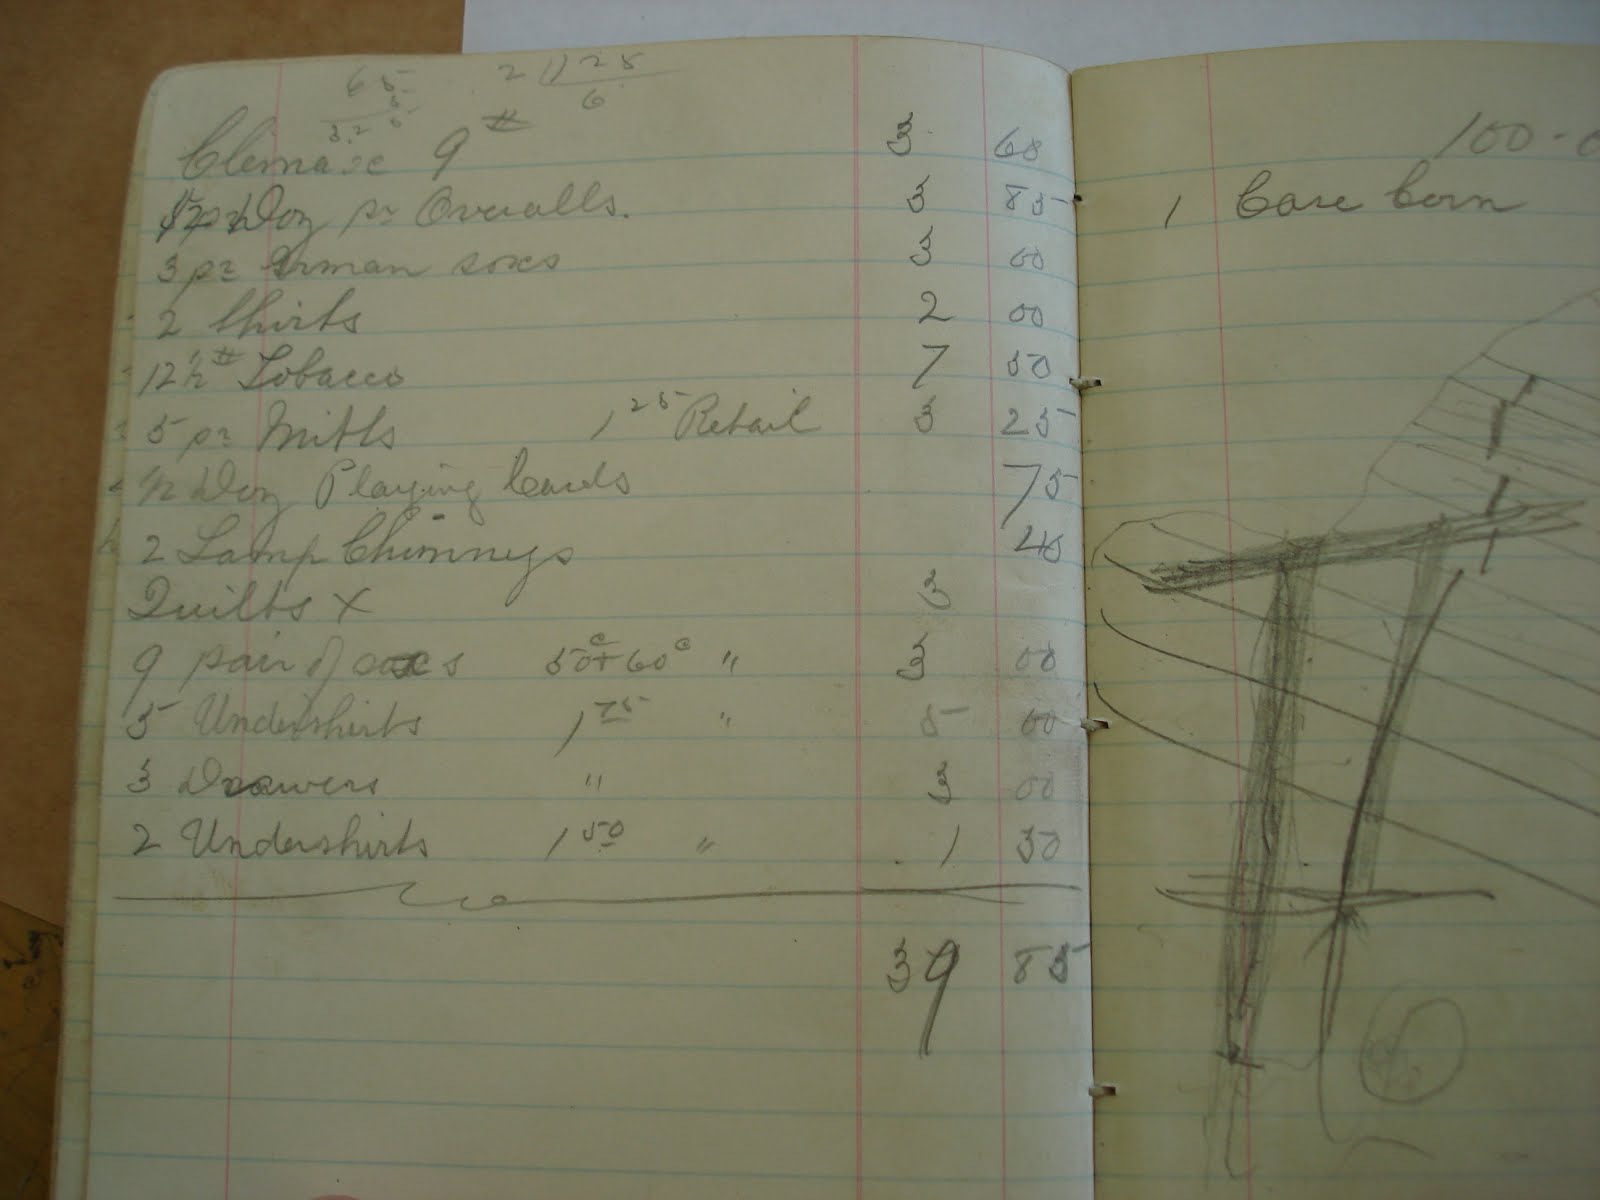 65 2)125
5 6
325
Climax 9 # 3 60
Doz pr Overalls. 3 85
3 pr German soxs 3 00
2 Shirts 2 00
12½ # Tobacco 7 50
5 pr Mitts 1 25 Retail 3 25
½ Doz Playing Cards 75
2 Lamp Chimneys 40
Quilts x 3
9 pair of soxs 50c + 60c " 3 00
5 Undershirts 1 75 " 5 00
3 Drawers " 3 00
2 Undershirts 1 50 " 1 50
39 85
100-
1 Case Corn